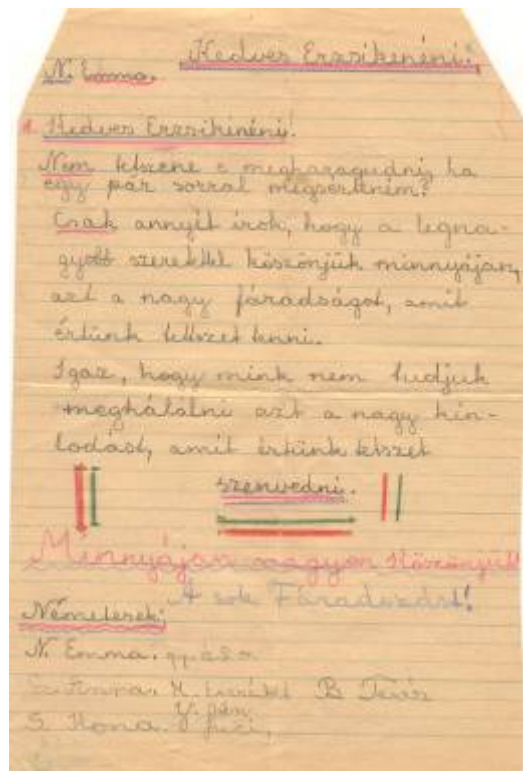 Kedves Erzsikenéni!
N. Emma.
1. Kedves Erzsikinéni!
Nem tetszene e megharagudni, ha
egy pár sorral megsérteném?
Csak annyit irok, hogy a legna-
gyobb szeretettel köszönjük minnyájan,
azt a nagy fáradságot, amit
értünk tetszet tenni.
Igaz, hogy mink nem tudjuk
meghálálni azt a nagy kin-
lodást, amit értünk tetszet
szenvedni.
Minnyájan nagyon Köszönjük
A sok Fáradozást!
N. Emma.
Anna.
S. Ilona.